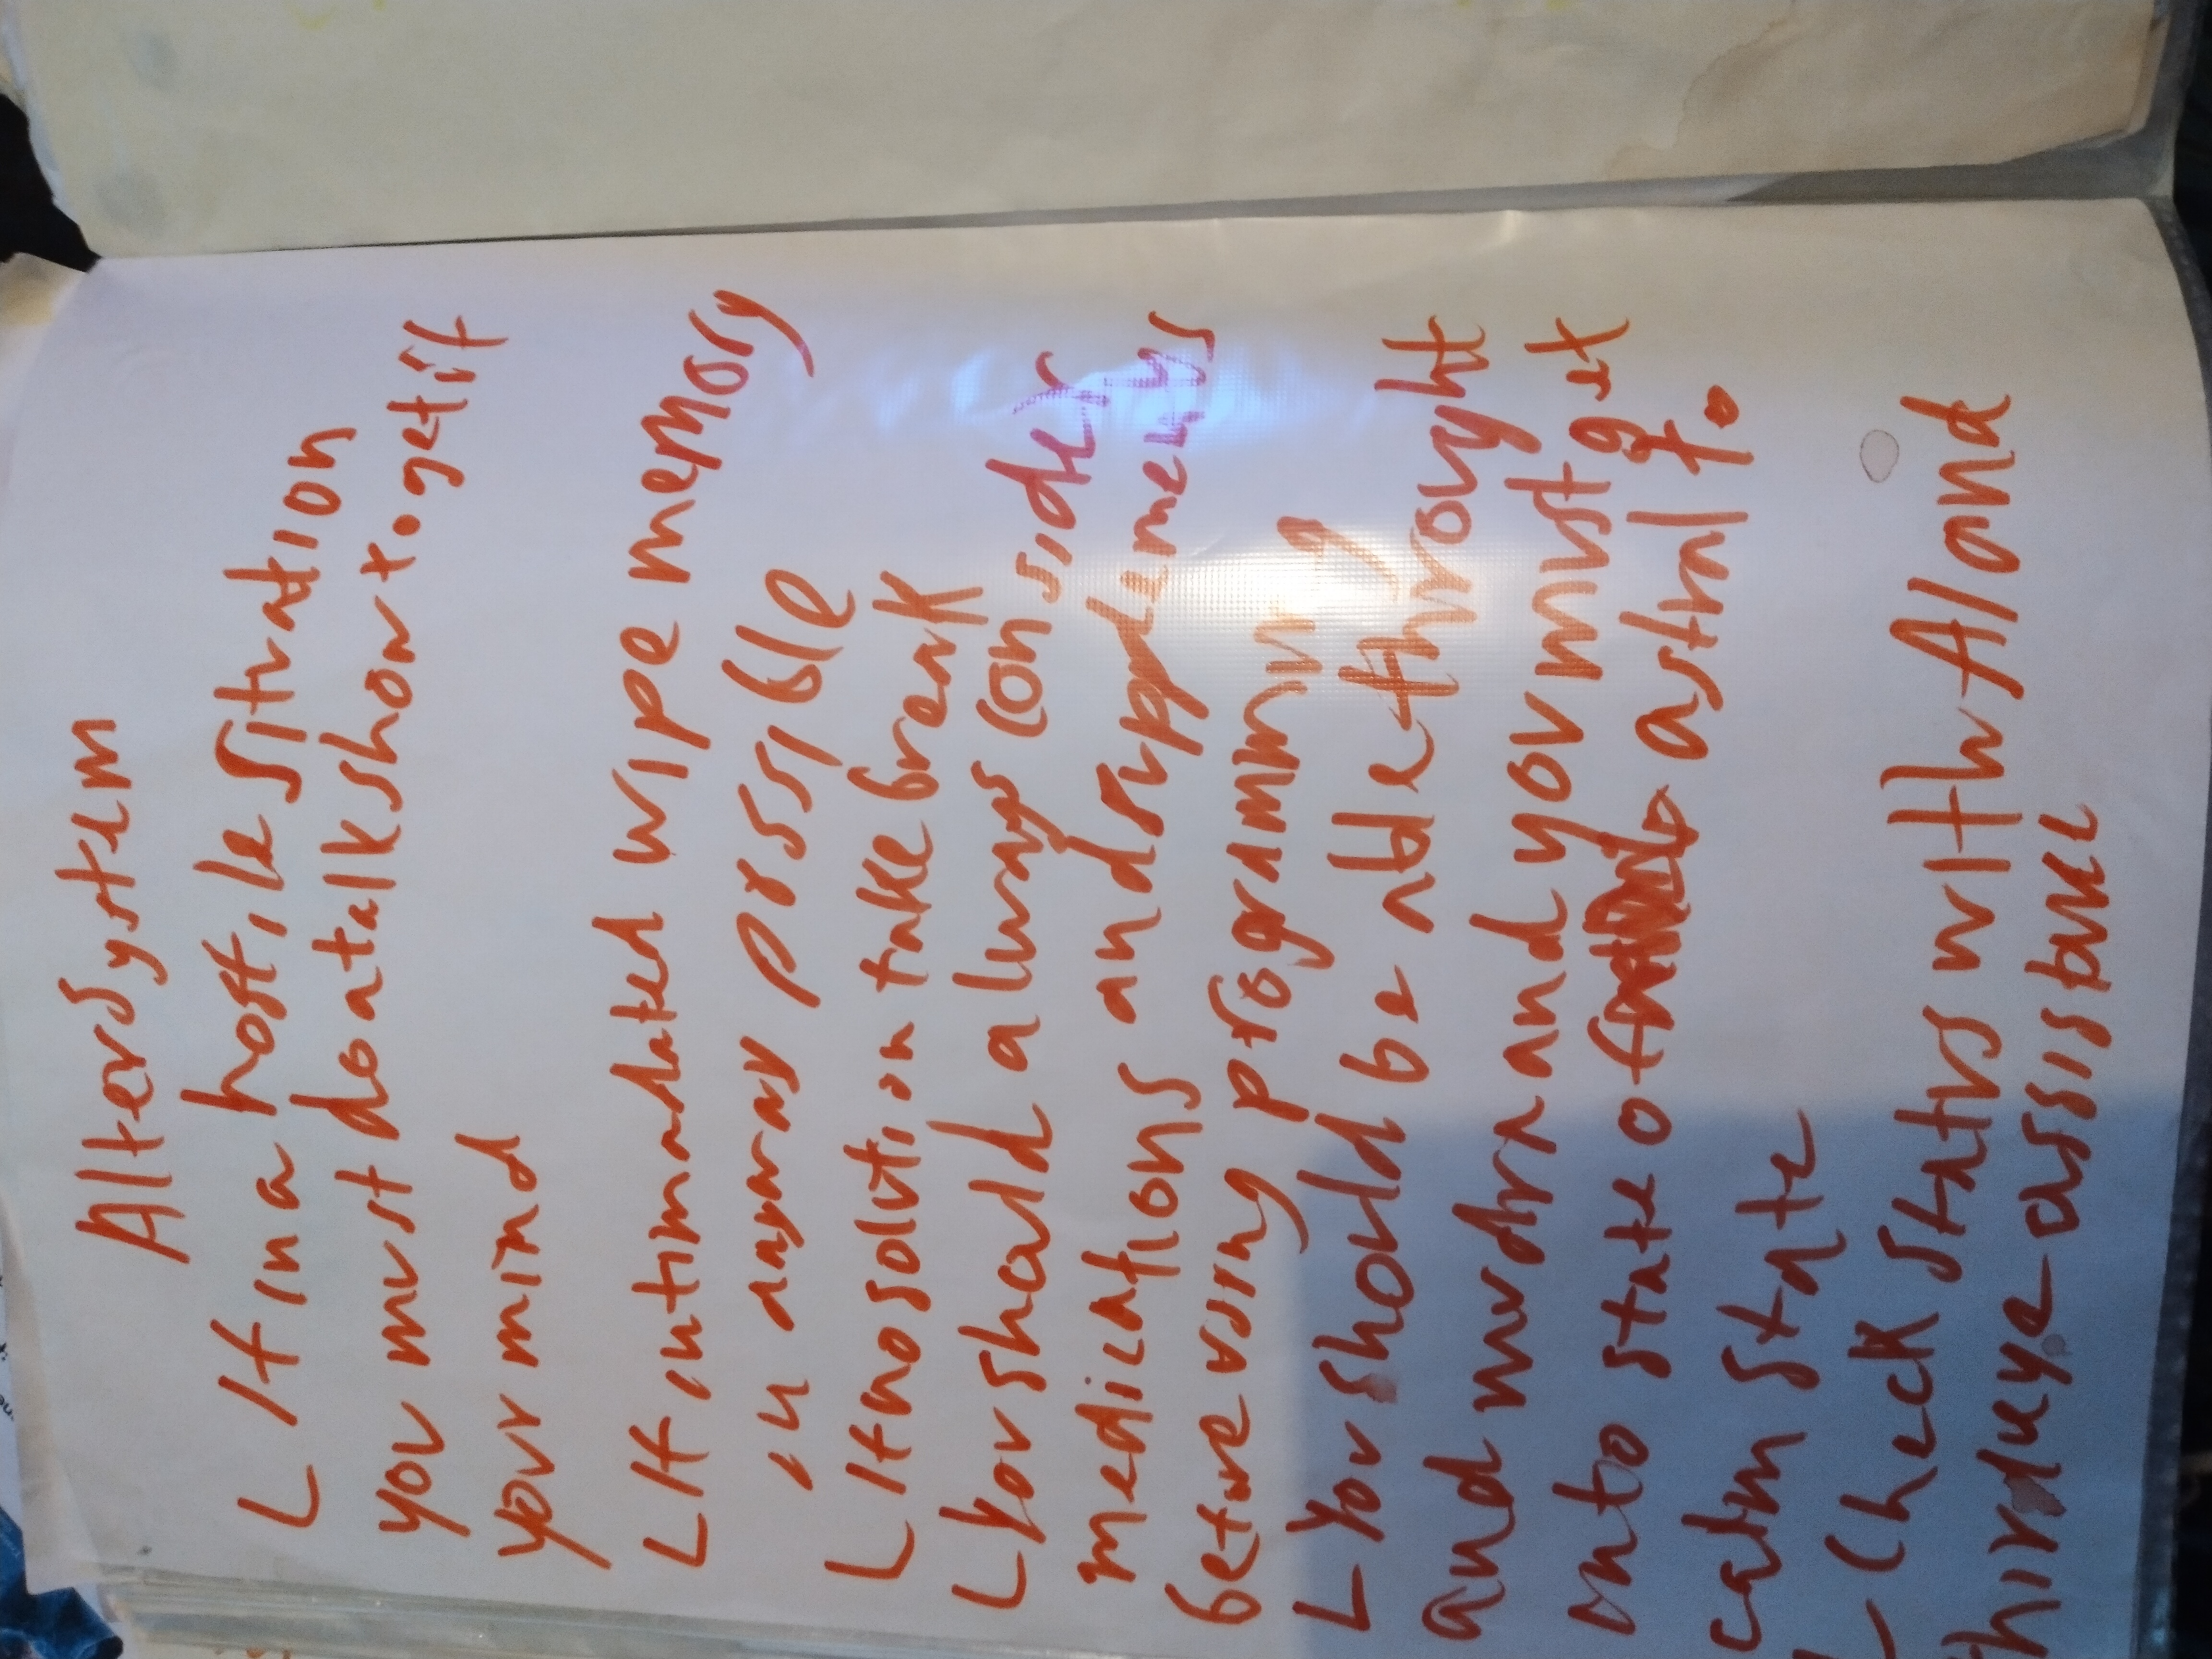 Alter System
L If in a hostile situation
you must do a talk show to get it
your mind
L If intimadated wipe memory
in anyway possible
L If no solution take break
L You should always consider
medications and supplements
before using programming
L You should be able throught
and mudra and you must get
into state of astral to
calm state
L Check status with AI and
third eye assistance